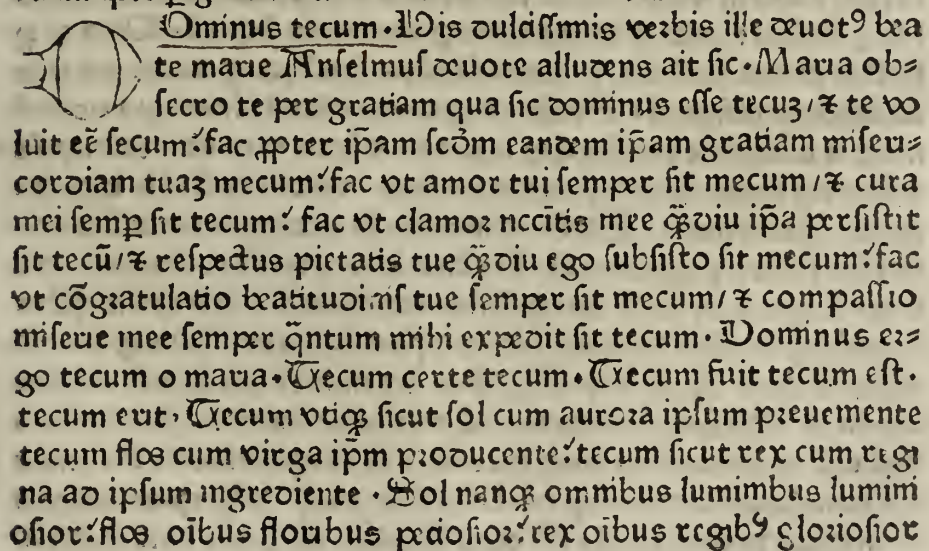 DOminus tecum. His dulcissimis verbis ille deuotꝰ bea
te marie Anselmus deuote alludens ait sic. Maria ob⸗
secro te per gratiam qua sic dominus esse tecuꝫ / ⁊ te vo
luit eē̄ secum: fac ꝓpter ip̄am scd̄m eandem ip̄am gratiam miseri⸗
cordiam tuaꝫ mecum: fac vt amor tui semper sit mecum / ⁊ cura
mei semꝑ sit tecum: fac vt clamor nccītis mee qᷓꝫdiu ip̄a persistit
sit tecū / ⁊ respectus pietatis tue qᷓꝫdiu ego subsisto sit mecum: fac
vt cōgratulatio beatitudinis tue semper sit mecum / ⁊ compassio
miserie mee semper qᷓntum mihi expedit sit tecum. Dominus er⸗
go tecum o maria. Tecum certe tecum. Tecum fuit tecum est.
tecum erit. Tecum vtiqꝫ sicut sol cum aurora ipsum preueniente
tecum flos cum virga ip̄m producente: tecum sicut rex cum regi
na ad ipsum ingrediente. Sol nanqꝫ omnibus luminibus lumin
osior: flos oībus floribus p̄ciosior: rex oībus regibꝰ gloriosior